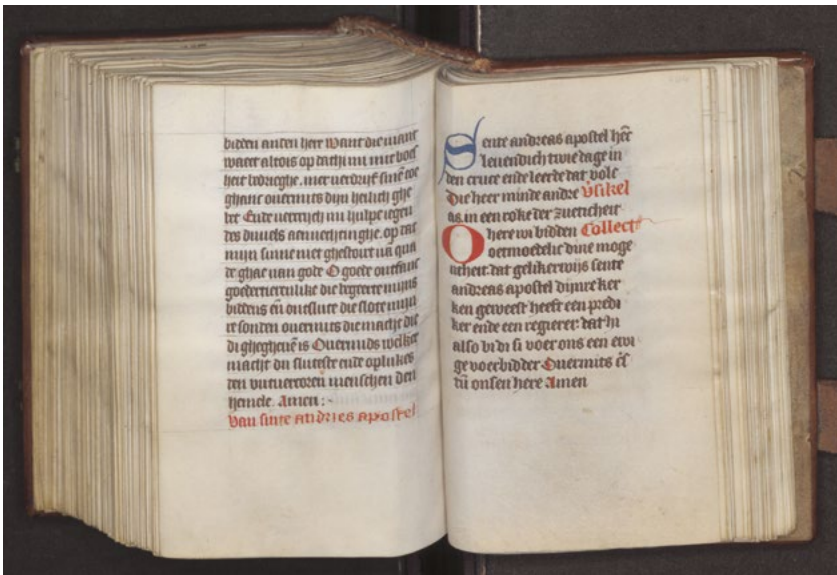 bidden an den heer Want die viant
waect altois op dat hi mi niet boes
heit bedrieghe. mer verdrijf sine toe
ghanc ouermits dijn heilich ghe
bet Ende verwerf mi hulpe teghen
des duuels aenuechtinghe. op dat
mijn sinne niet ghestoert en
ghae van gode O goede ontfanc
goedertierenlike die begeerte mijns
biddens en̄ ontsluut die slote mijn
re sonden ouermits die macht die
di ghegheuē is Ouermids welker
macht du sluutste ende oplukes
den wtuercoren menschen den
hemele. Amen:-
Van sinte andries apostel
Sente andreas apostel hēē
leuendich twie dage in
den cruce ende leerde dat volc
Die heer minde andre v̄sikel
as in een roke der zueticheit
O here wi bidden Collect
oetmoedelic dine moge
licheit. dat gelikerwijs sente
andreas apostel dijnre ker
ken geweest heeft een predi
ker ende een regierer: dat hi
also bi di si voer ons een ewi
ge voerbidder Ouermits
onsen here Amen